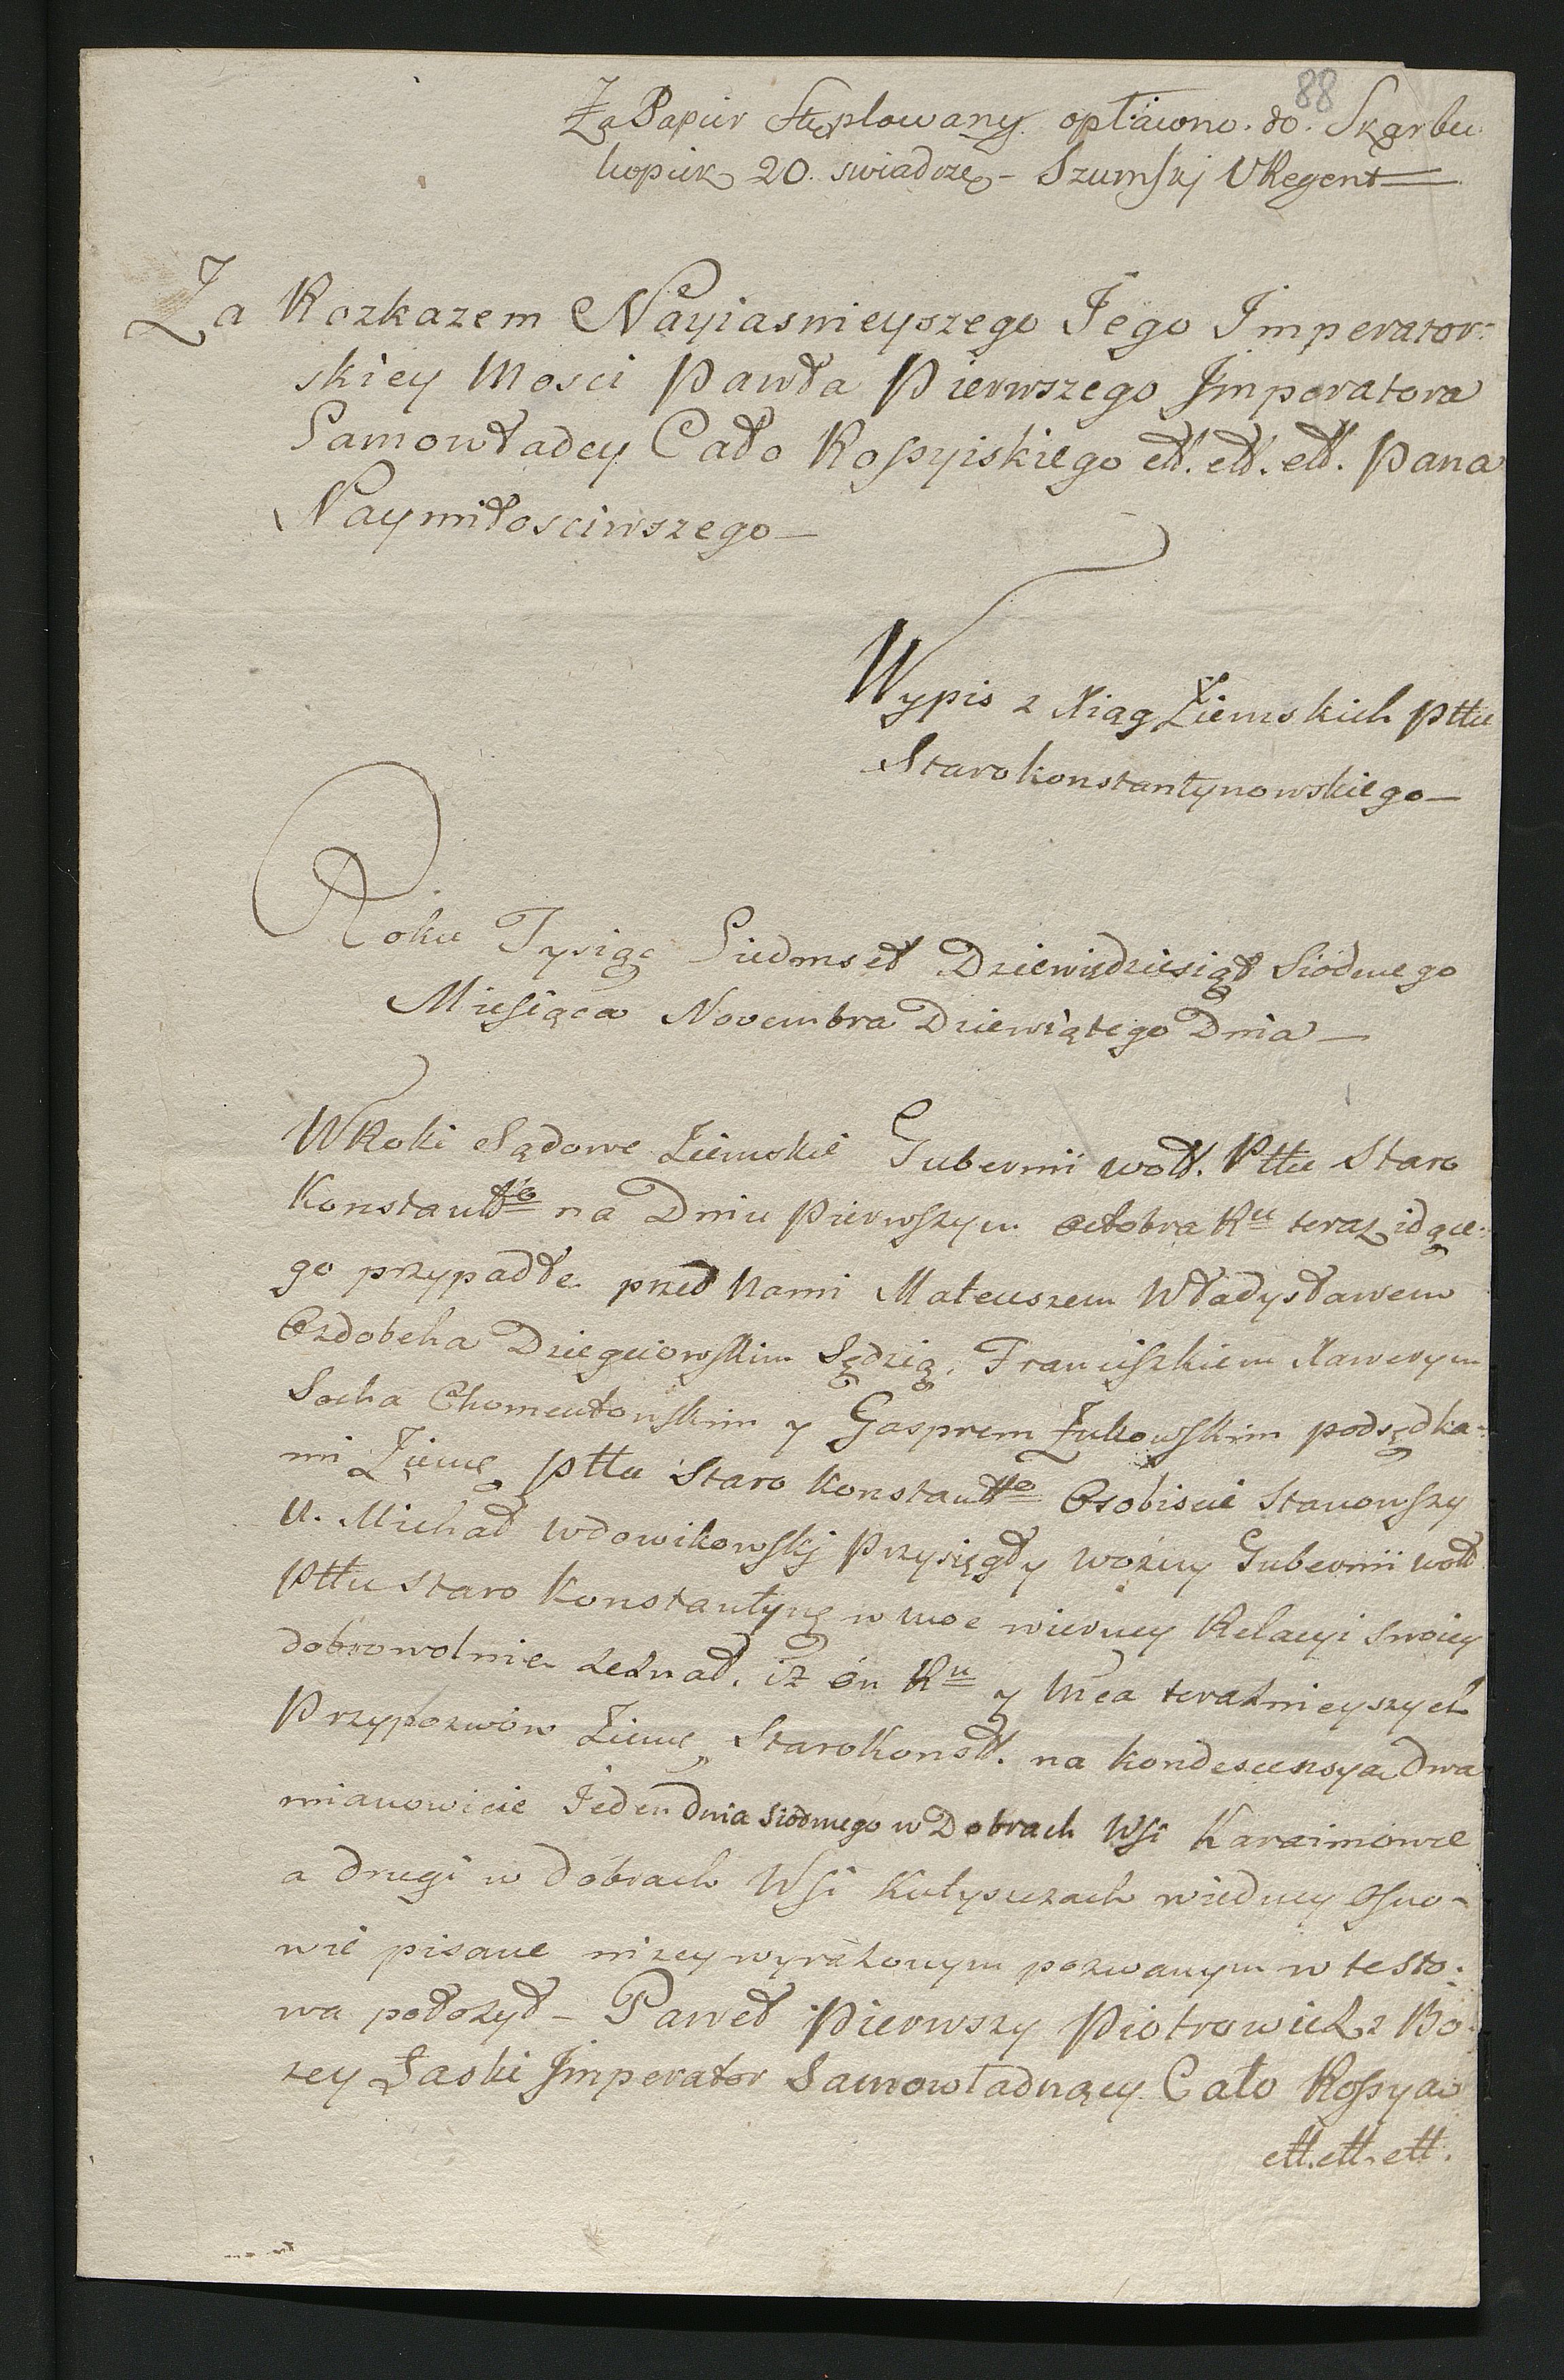 88
Za Papier Stęplowany opłacono do Skarbu
kopiek 20. swiadczę - Szumskj VRegent
Za Rozkazem Nayiasnieyszego Jego Imperator:
skiey Mosci Pawła Pierwszego Imperatora
Samowładcy Cało Rossyiskiego ett. ett. ett. Pana
Naymiłosciwszego —
Wypis z Xiąg Ziemskich Pttu
Starokonstantynowskiego —
Roku Tysiąc Siedmset Dziewiędziesiąt Siódmego
Miesiąca Novembra Dziewiątego Dnia —
W Roki Sądowe Ziemskie Gubernii woł. Pttu Staro
Konstantgo na Dniu Pierwszym Octobra Ru teraz idące:
go przypadłe przed Nami Mateuszem Władysławem
Ozdobcha Dziegciowskim Sędzią, Franciszkiem Xawerym
Socha Chomentowskim y Gasprem Żukowskim podsędka:
mi Ziemę Pttu Staro Konstantgo Osobiscie Stanowszy
U. Michał Wdowikowskj Przysięgły woźny Gubernii woł
Pttu Staro Konstantynę w moc wierney Relacyi swoiey
dobrowolnie zeznał, iż on Ru y Mca teraznieyszych
Przypozwów Ziemę StaroKonstt. na kondescensya dwa
mianowicie Jeden dnia siódmego w Dobrach Wsi Karaimówce
a drugi w dobrach Wsi Kutyszczach w iedney osno-
wie pisane niżey wyrażonym pozwanym w testo:
wa położył - Paweł Pierwszy Piotrowicz z Bo:
zey Łaski Imperator Samowładnący Cało Rossya
ett. ett. ett.